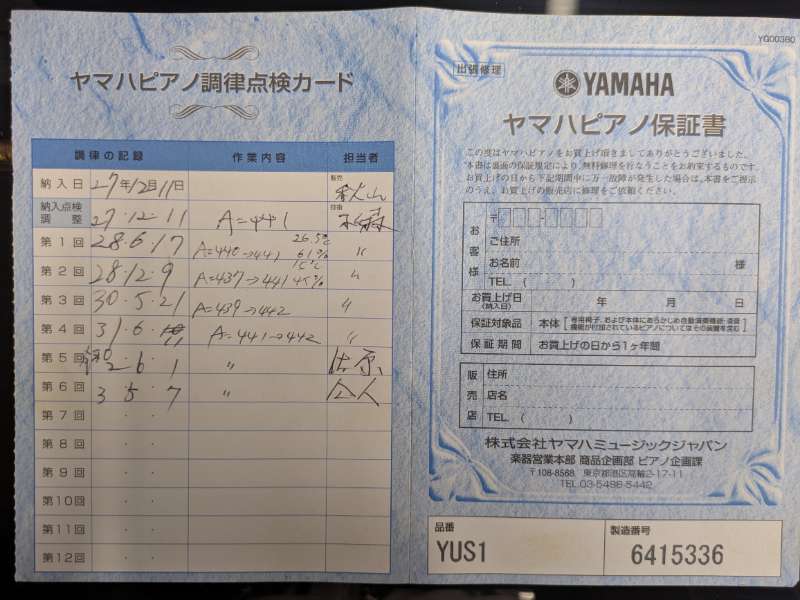 ヤマハピアノ調律点検カード
調律の記録 作業内容 担当者
納入日 27年12月11日 販売 秋山
納入点検調整 27・12・11 A=441 技術
第1回 28・6・17 A=440→441 26.5℃ 61% 〃
第2回 28・12・9 A=437→441 15℃ 45% 〃
第3回 30・5・21 A=439→442 〃
第4回 31・6・11 A=441→442 〃
第5回 令和2・6・1 〃
第6回 3・5・7 〃
第7回 ・ ・
第8回 ・ ・
第9回 ・ ・
第10回 ・ ・
第11回 ・ ・
第12回 ・ ・
YG00380
出張修理
YAMAHA
ヤマハピアノ保証書
この度はヤマハピアノをお買上げ頂きましてありがとうございました。
本書は裏面の保証規定により、無料修理を行なうことをお約束するものです。
お買上げの日から下記期間中に万一故障が発生した場合は、本書をご提示
のうえ、お買上げの販売店に修理をご依頼ください。
お客様
〒
ご住所
お名前 様
TEL. ( )
お買上げ日(納入日) 年 月 日
保証対象品 本体 [専用椅子、および本体にあらかじめ自動演奏機能・消音機能が付加されているピアノについてはその装置を含む]
保証期間 お買上げの日から1ヶ年間
販売店
住所
店名
TEL. ( )
株式会社ヤマハミュージックジャパン
楽器営業本部 商品企画部 ピアノ企画課
〒108-8568 東京都港区高輪2-17-11
TEL.03-5488-5442
品番
YUS1
製造番号
6415336